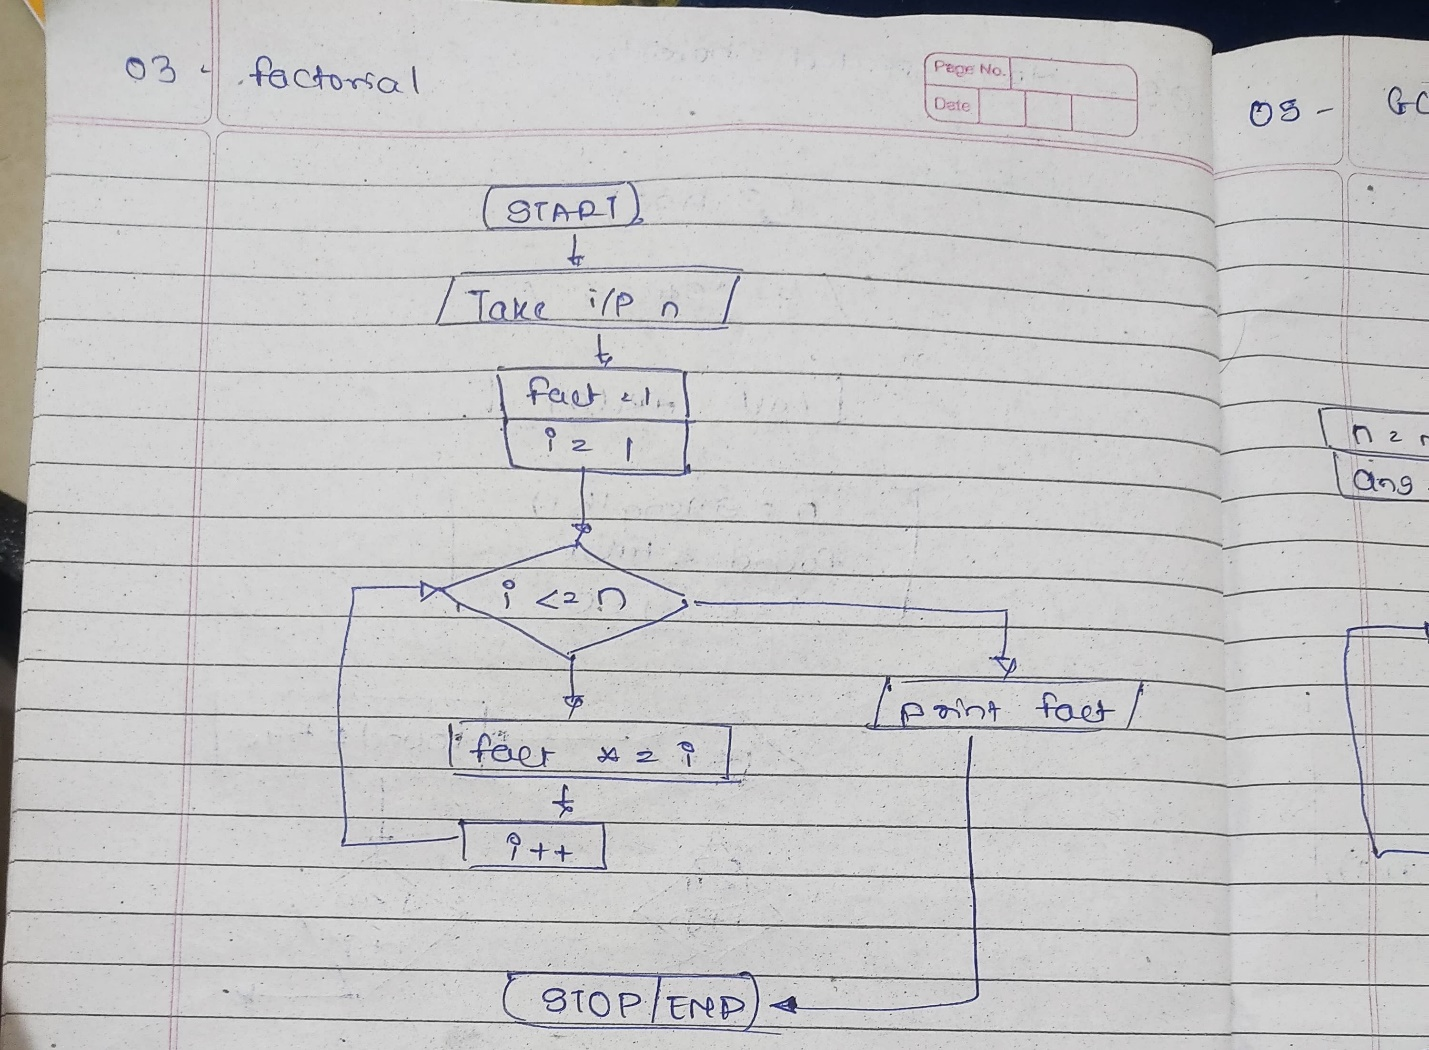 03 - factorial
Page No.
Date
START
Take i/p n
fact = 1
i = 1
i <= n
print fact
fact *= i
i++
STOP/END
05 - GC
n =
ans